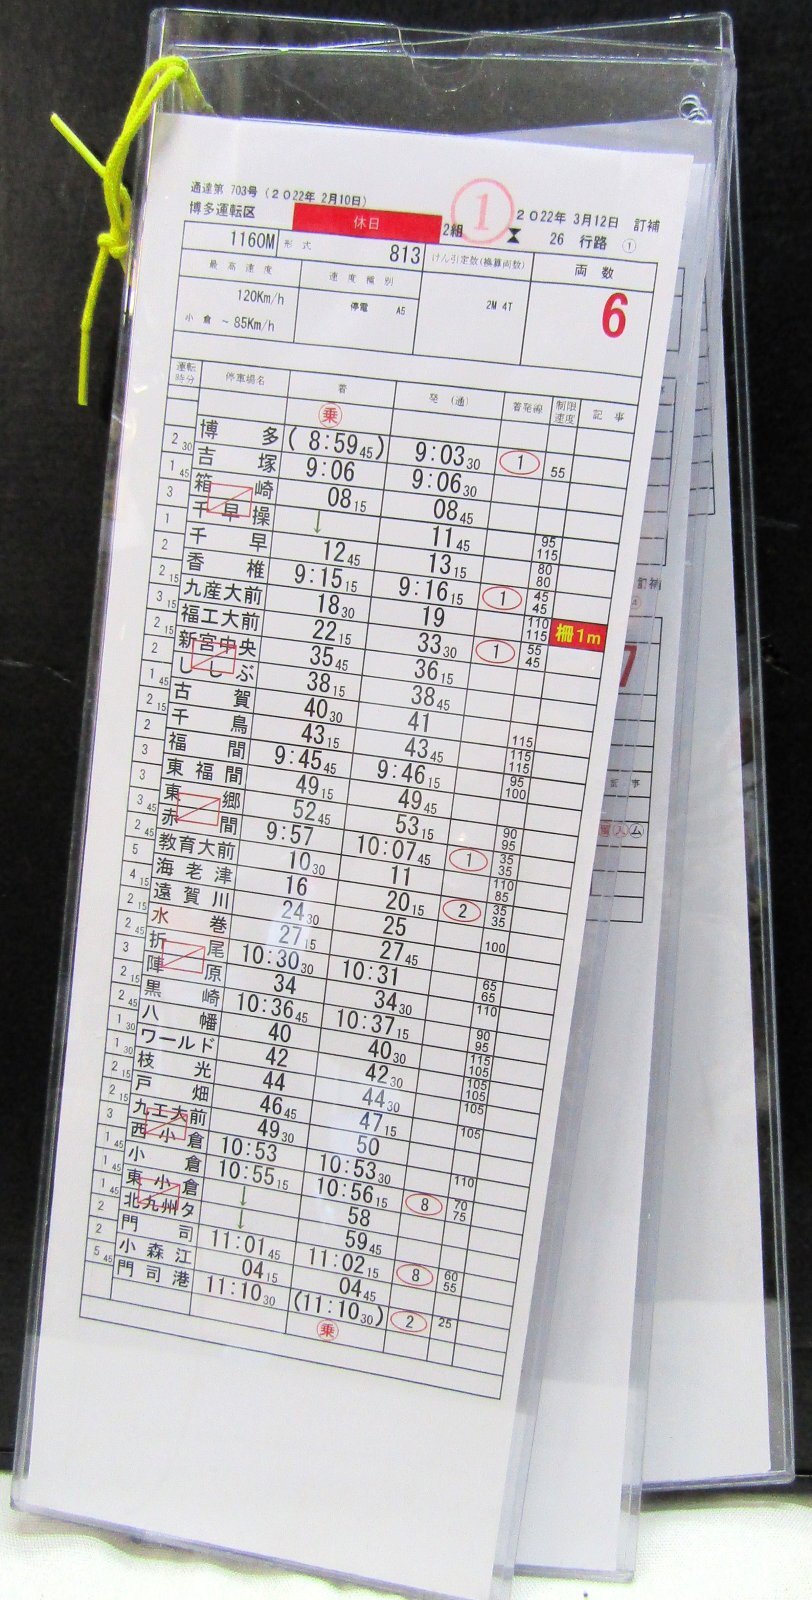 通達第 703号(2022年 2月10日)
博多運転区 休日 2組 ① 2022年 3月12日 訂補
26 行路 ①
1160M 形式 813 けん引定数(換算両数) 両数
最高速度 速度種別
120Km/h 停電 A5 2M 4T 6
小倉 ~85Km/h
運転時分 停車場名 着 発(通) 着発線 制限速度 記事
乗
博多 (8:59 45) 9:03 30 1
2 30 吉塚 9:06 9:06 30 55
1 45 箱崎 08 15 08 45
3 千早操 ↓ 11 45 95 115
1 千早 12 45 13 15 80 80
2 香椎 9:15 15 9:16 15 1 45 45
2 15 九産大前 18 30 19 110 115
3 15 福工大前 22 15 33 30 1 55 45 柵1m
2 15 新宮中央 35 45 36 15
2 ししぶ 38 15 38 45
1 45 古賀 40 30 41 115
2 15 千鳥 43 15 43 45 115 115
2 福間 9:45 45 9:46 15 95 100
3 東福間 49 15 49 45
3 東郷 52 45 53 15 90 95
3 45 赤間 9:57 10:07 45 1 35 35
2 45 教育大前 10 30 11 110 85
5 海老津 16 20 15 2 35 35
4 15 遠賀川 24 30 25 100
2 15 水巻 27 15 27 45
2 45 折尾 10:30 30 10:31 65 65
3 陣原 34 34 30 110
2 15 黒崎 10:36 45 10:37 15 90 95
2 45 八幡 40 40 30 115 105
1 30 ワールド 42 42 30 105 105
1 30 枝光 44 44 30 105
2 15 戸畑 46 45 47 15 105
2 15 九工大前 49 30 50
3 西小倉 10:53 10:53 30 110
1 45 小倉 10:55 15 10:56 15 8 70 75
1 45 東小倉 ↓ 58
1 45 北九州タ ↓ 59 45
2 門司 11:01 45 11:02 15 8 60 55
2 小森江 04 15 04 45
5 45 門司港 11:10 30 (11:10 30) 2 25
乗
訂補
④
7
事
入 ム